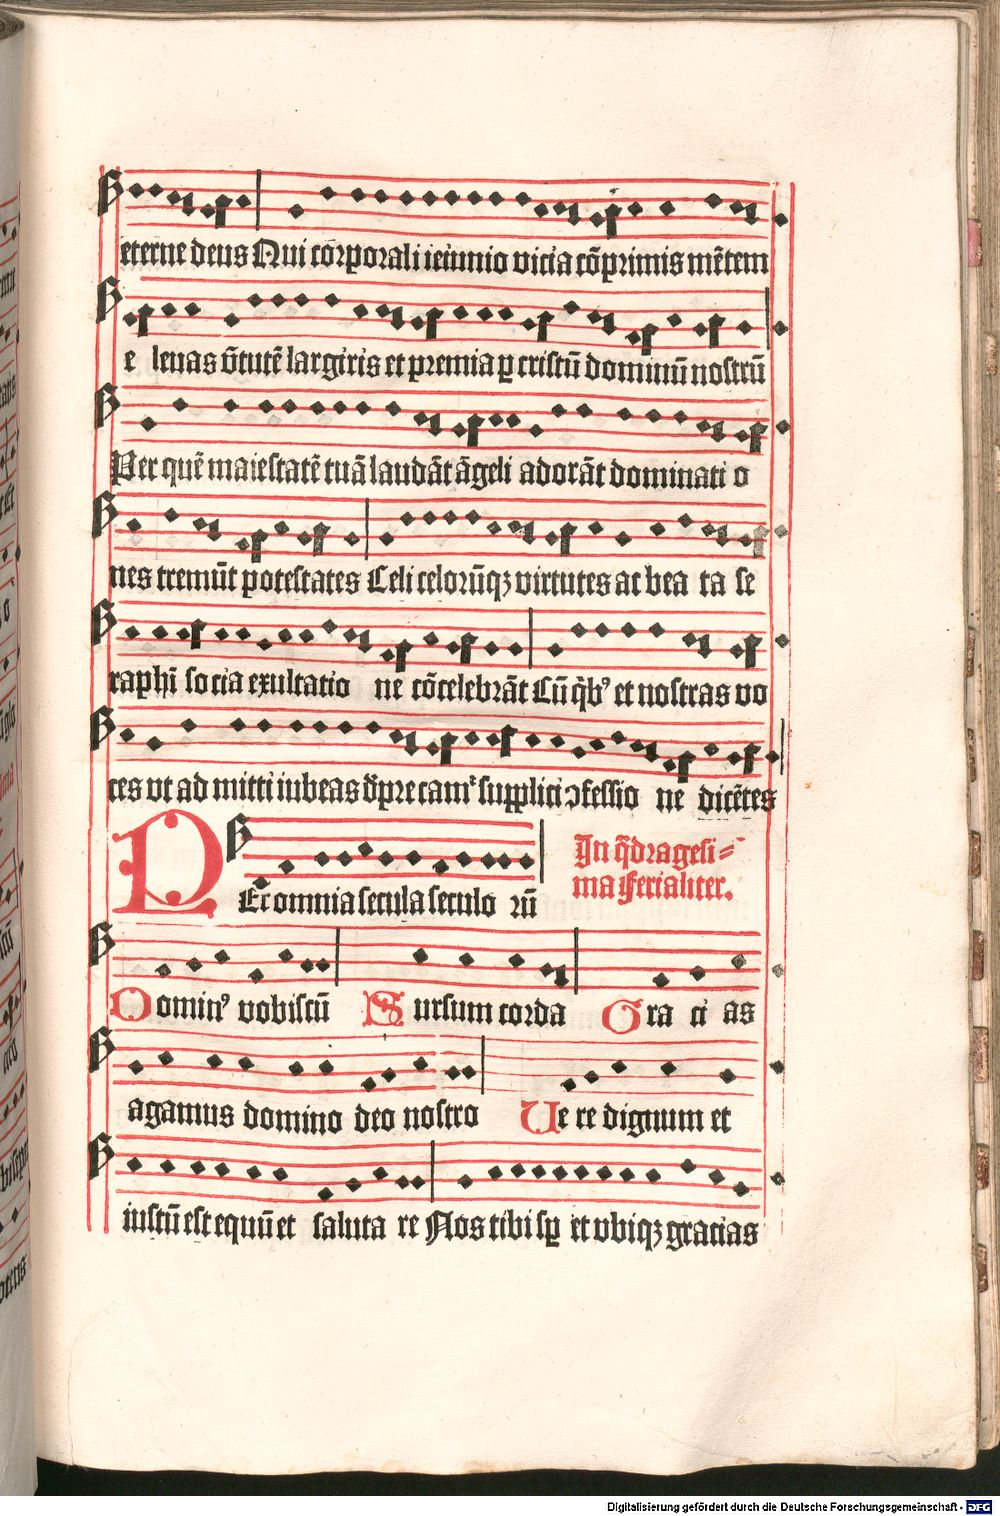 eterne deus Qui corporali ieiunio vicia cōprimis mētem
e leuas v̄tutē largiris et premia ꝑ cristū dominū nostrū
Per quē maiestatē tuā laudāt āgeli adorāt dominati o
nes tremūt potestates Celi celorūqꝫ virtutes ac bea ta se
raphī socia exultatio ne cōcelebrāt Cū q̄bꝰ et nostras vo
ces vt ad mitti iubeas d̄precamᷣ supplici ↄfessio ne dicētes
Per omnia secula seculo rū
In q̄dragesi⸗
ma ferialiter.
Dominꝰ vobiscū Sursum corda Gra ci as
agamus domino deo nostro Ue re dignum et
iustū est equū et saluta re Nos tibi sꝑ et vbiqꝫ gracias
Digitalisierung gefördert durch die Deutsche Forschungsgemeinschaft - DFG